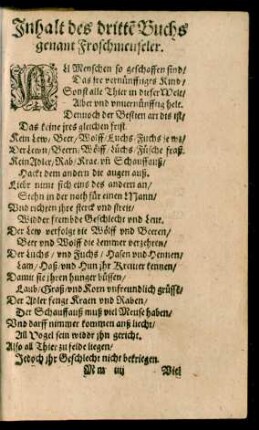 Inhalt des dritte Buchs
genant Froschmeuseler.
Al Menschen so geschaffen sind/
Das ire vernünfftiges Kind/
Sonst alle Thier in dieser Welt/
Alber vnd vnuernünfftig helt.
Dennoch der Bestien art dis ist/
Das keine jres gleichen frist.
Kein Lew/ Beer/ Wolff/ Luchs/ Fuchs je wz/
Der Lewn/ Beern/ Wölff/ Lüchs/ Füchse fraß.
Kein Adler/ Rab/ Krae vñ Schauffauß/
Hackt dem andern die augen auß.
Liebr nimt sich eins des andern an/
Stehn in der noth für einen Mann/
Vnd richten jhre sterck und streit/
Widder frembde Geschlecht vnd Leut.
Der Lew verfolgt die Wölff vnd Beeren/
Beer vnd Wolff die lemmer verzehren/
Der Luchs/ vnd Fuchs/ Hasen vnd Hennen/
Lam/ Haß/ vnd Hun jhr Kreuter kennen/
Damit sie jhren hunger büssen/
Laub/ Graß/ vnd Korn vnfreundlich grüsst/
Der Adler fengt Kraen vnd Raben/
Der Schauffauß muß viel Meuse haben/
Vnd darff nimmer kommen ans liecht/
All Vogel sein widdr jhn gericht.
Also all Thier zu felde liegen/
Jedoch jhr Geschlecht nicht bekriegen.
Mm iiij Viel